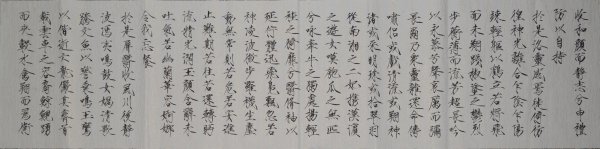 收和顏而靜志兮申禮
防以自持
於是洛靈感焉徙倚彷
徨神光離合乍陰乍陽
竦輕軀以鶴立若將飛
而未翔踐椒塗之郁烈
步蘅薄而流芳超長吟
以永慕兮聲哀厲而彌
長爾乃衆靈雜遝命儔
嘯侶或戲清流或翔神
渚或采明珠或拾翠羽
從南湘之二妃攜漢濱
之遊女嘆匏瓜之無匹
兮咏牽牛之獨處揚輕
袿之猗靡兮翳脩袖以
延佇體迅飛鳧飄忽若
神凌波微步羅襪生塵
動無常則若危若安進
止難期若往若還轉眄
流精光潤玉顏含辭未
吐氣若幽蘭華容婀娜
令我忘餐
於是屏翳收風川后靜
波馮夷鳴鼓女媧清歌
騰文魚以警乘鳴玉鸞
以偕逝六龍儼其齊首
載雲車之容裔鯨鯢踴
而夾轂水禽翔而爲衛